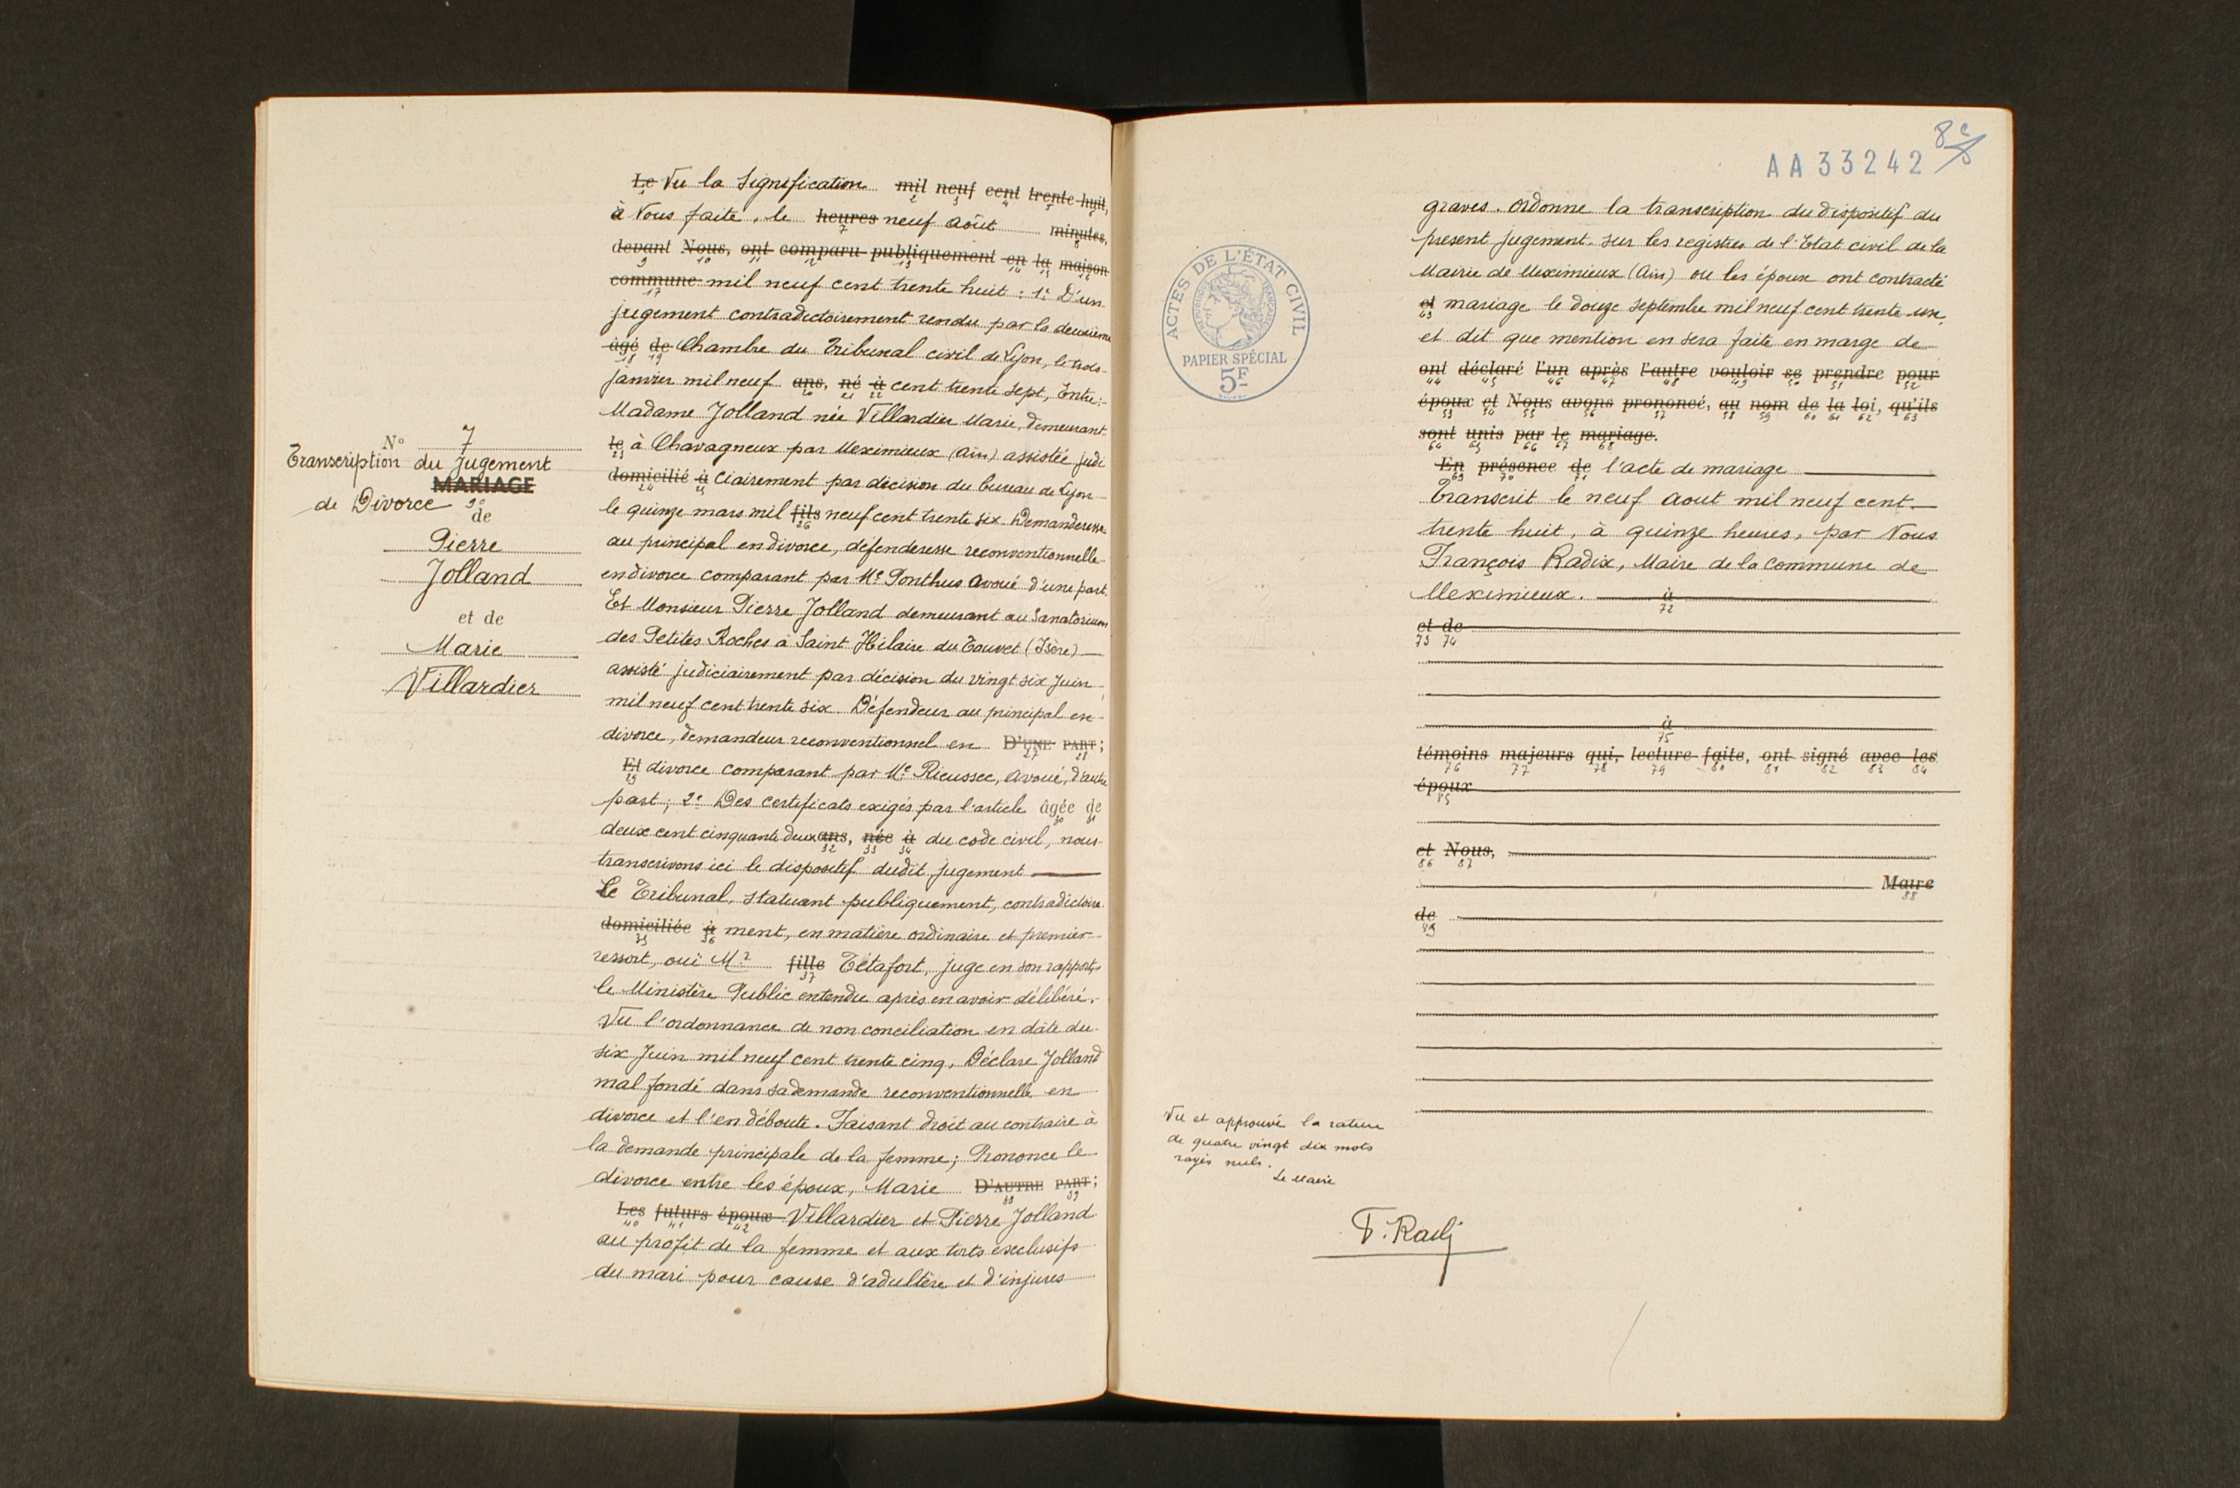 N° 7
Transcription du Jugement
MARIAGE
de Divorce
de
Pierre
Jolland
et de
Marie
Villardier
Le Vu la Signification mil neuf cent trente-huit,
à Nous faite, le heures neuf août minutes,
devant Nous, ont comparu publiquement en la maison
commune mil neuf cent trente huit : 1° D'un
jugement contradictoirement rendu par la deuxième
âgé de Chambre du Tribunal civil de Lyon, le trois
janvier mil neuf ans, né à cent trente sept, Entre :
Madame Jolland née Villardier Marie, demeurant
le à Chavagneux par Meximieux (Ain) assistée judi
domicilié à ciairement par décision du bureau de Lyon
le quinze mars mil fils neuf cent trente six. Demanderesse
au principal en divorce, défenderesse reconventionnelle
en divorce comparant par Me Ponthus avoué d'une part.
Et Monsieur Pierre Jolland demeurant au Sanatorium
des Petites Roches à Saint Hilaire du Touvet (Isère)
assisté judiciairement par décision du vingt six Juin
mil neuf cent trente six. Défendeur au principal en
divorce, demandeur reconventionnel en D'UNE PART ;
Et divorce comparant par Me Rieussec, avoué, d'autre
part ; 2° Des certificats exigés par l'article âgée de
deux cent cinquante deux ans, née à du code civil, nous
transcrivons ici le dispositif dudit jugement
Le Tribunal, statuant publiquement, contradictoire
domiciliée à ment, en matière ordinaire et premier
ressort, ouï Mr fille Tétafort, juge en son rapport,
le Ministère Public entendu après en avoir délibéré.
Vu l'ordonnance de non conciliation en date du
six Juin mil neuf cent trente cinq, Déclare Jolland
mal fondé dans sa demande reconventionnelle en
divorce et l'en déboute. Faisant droit au contraire à
la demande principale de la femme ; Prononce le
divorce entre les époux, Marie D'AUTRE PART ;
Les futurs époux Villardier et Pierre Jolland
au profit de la femme et aux torts exclusifs
du mari pour cause d'adultère et d'injures
8e
AA33242
ACTES DE L'ÉTAT CIVIL
RÉPUBLIQUE FRANÇAISE
PAPIER SPÉCIAL
5F
graves. Ordonne la transcription du dispositif du
present jugement sur les registres de l'Etat civil de la
Mairie de Meximieux (Ain) ou les époux ont contracté
et mariage le douze septembre mil neuf cent trente un,
et dit que mention en sera faite en marge de
ont déclaré l'un après l'autre vouloir se prendre pour
époux et Nous avons prononcé, au nom de la loi, qu'ils
sont unis par le mariage.
En présence de l'acte de mariage
Transcrit le neuf aout mil neuf cent
trente huit, à quinze heures, par Nous
François Radix, Maire de la commune de
Meximieux. à
et de
à
témoins majeurs qui, lecture faite, ont signé avec les
époux
et Nous,
Maire
de
Vu et approuvé la rature
de quatre vingt dix mots
rayés nuls.
Le Maire
F. Radix